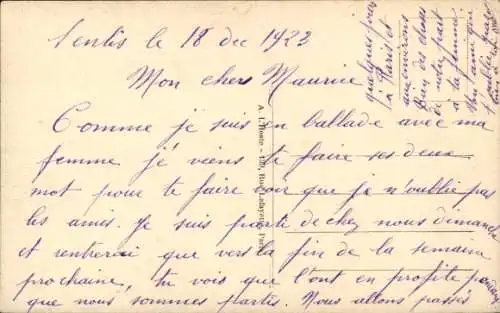 Senlis le 18 dec 1923
Mon cher Maurice
Comme je suis en ballade avec ma
femme je viens te faire ses deux
mot pour te faire voir que je n'oublie pas
les amis. Je suis parti de chez nous dimanche
et rentrerai que vers la fin de la semaine
prochaine, tu vois que l'ont en profite pendant
que nous sommes partis. Nous allons passés
quelques jours
à Paris et
aux environs
Bien des choses
de notre part
à ta femme.
Ton ami qui
A. L'Hoste - Rue Lafayette, Paris